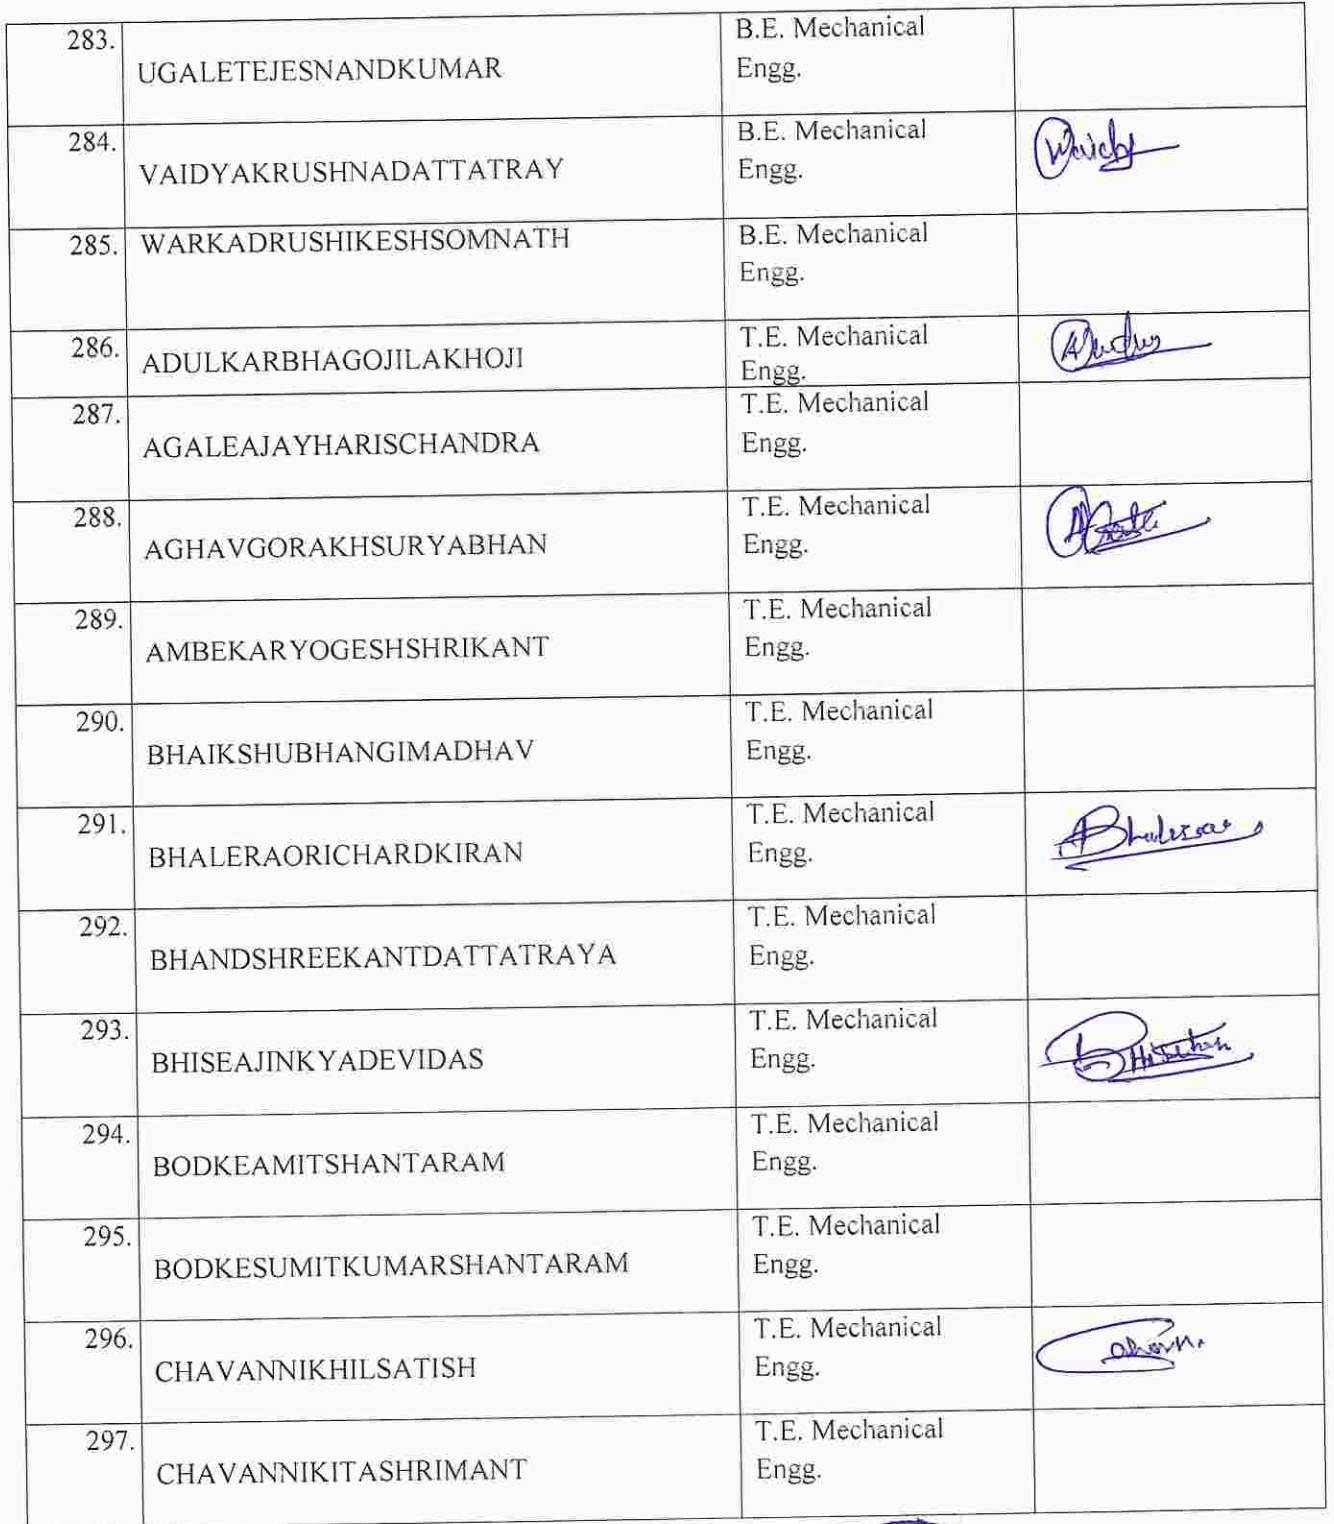 283.
UGALETEJESNANDKUMAR
B.E. Mechanical
Engg.
284.
VAIDYAKRUSHNADATTATRAY
B.E. Mechanical
Engg.
285.
WARKADRUSHIKESHSOMNATH
B.E. Mechanical
Engg.
286.
ADULKARBHAGOJILAKHOJI
T.E. Mechanical
Engg.
287.
AGALEAJAYHARISCHANDRA
T.E. Mechanical
Engg.
288.
AGHAVGORAKHSURYABHAN
T.E. Mechanical
Engg.
289.
AMBEKARYOGESHSHRIKANT
T.E. Mechanical
Engg.
290.
BHAIKSHUBHANGIMADHAV
T.E. Mechanical
Engg.
291.
BHALERAORICHARDKIRAN
T.E. Mechanical
Engg.
292.
BHANDSHREEKANTDATTATRAYA
T.E. Mechanical
Engg.
293.
BHISEAJINKYADEVIDAS
T.E. Mechanical
Engg.
294.
BODKEAMITSHANTARAM
T.E. Mechanical
Engg.
295.
BODKESUMITKUMARSHANTARAM
T.E. Mechanical
Engg.
296.
CHAVANNIKHILSATISH
T.E. Mechanical
Engg.
297.
CHAVANNIKITASHRIMANT
T.E. Mechanical
Engg.